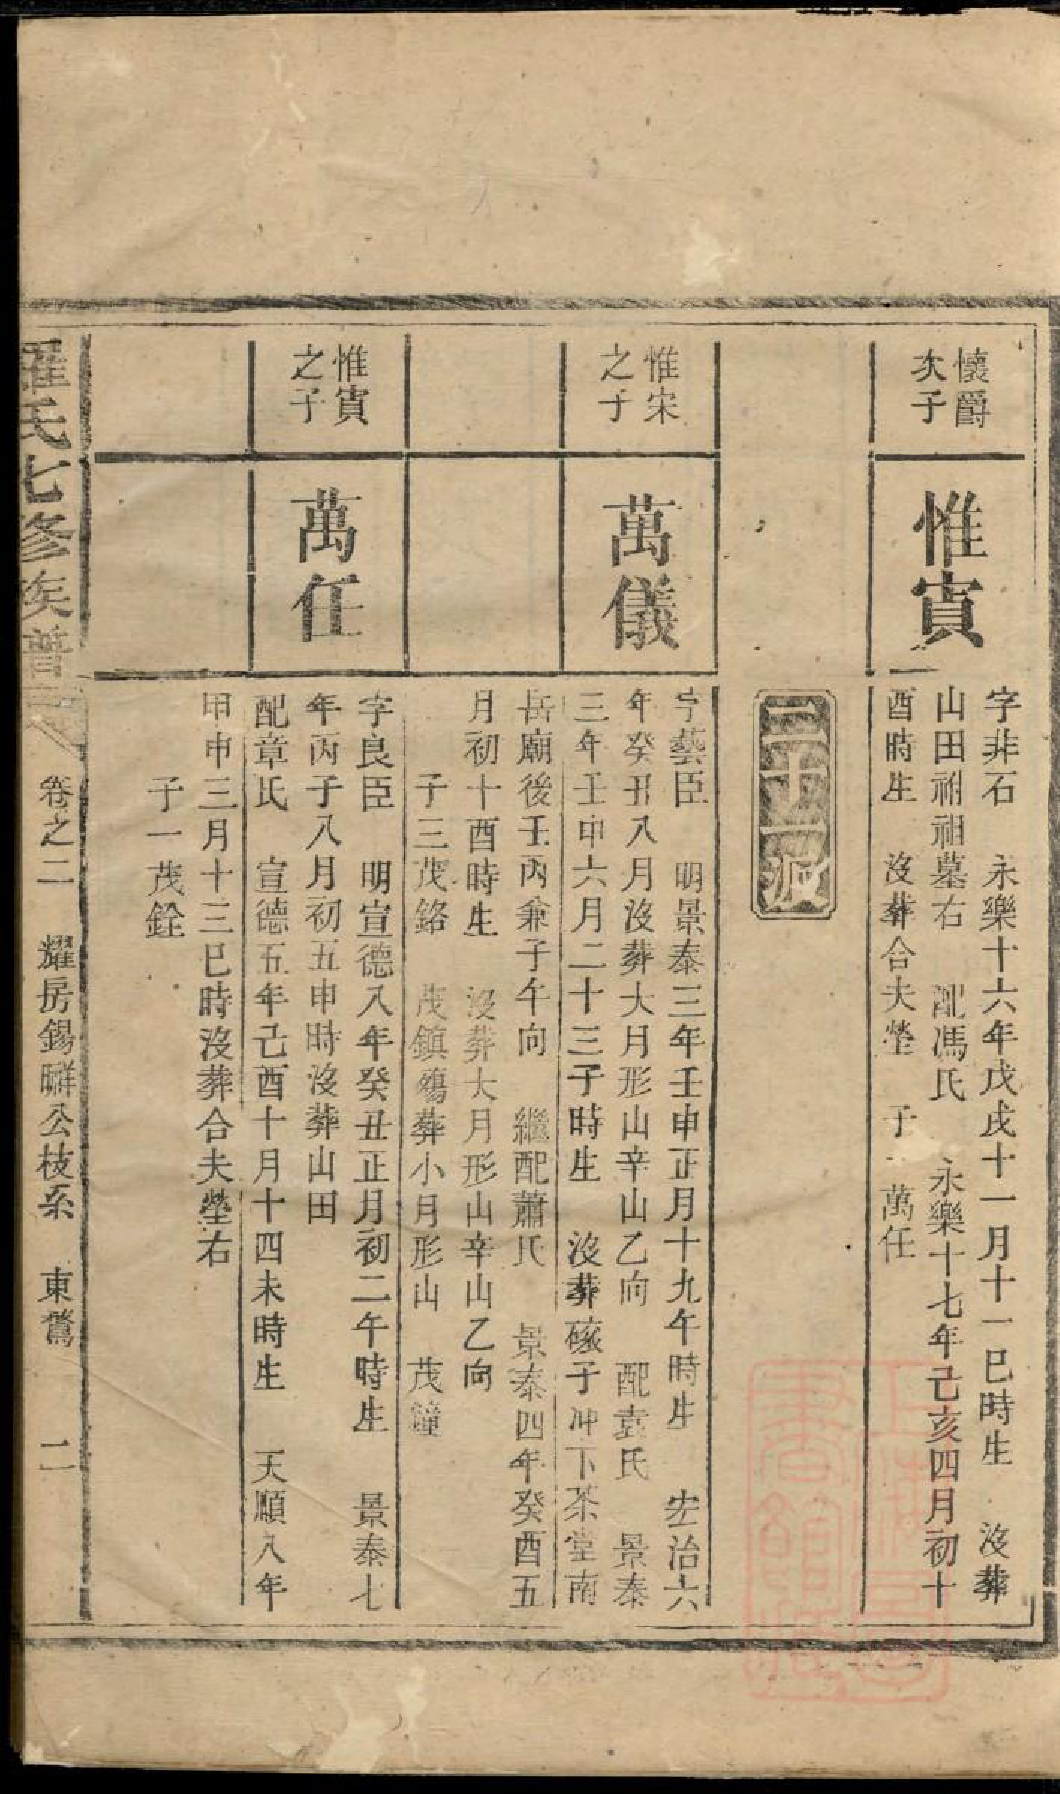 懷爵
次子
惟賓
字非石 永樂十六年戊戌十一月十一巳時生 沒葬
山田祖墓右 配馮氏 永樂十七年己亥四月初十
酉時生 沒葬合夫塋 子一萬任
二十一派
惟宋
之子
萬儀
字藝臣 明景泰三年壬申正月十九午時生 宏治六
年癸丑八月沒葬大月形山辛山乙向 配袁氏 景泰
三年壬申六月二十三子時生 沒葬磙子冲下茶堂南
岳廟後壬丙兼子午向 繼配蕭氏 景泰四年癸酉五
月初十酉時生 沒葬大月形山辛山乙向
子三茂鉻 茂鎮殤葬小月形山 茂鐘
惟賓
之子
萬任
字良臣 明宣德八年癸丑正月初二午時生 景泰七
年丙子八月初五申時沒葬山田
配章氏 宣德五年己酉十月十四未時生 天順八年
甲申三月十三巳時沒葬合夫塋右
子一茂銓
羅氏七修族譜
卷之二 耀房錫疇公枝系 東鶯 二